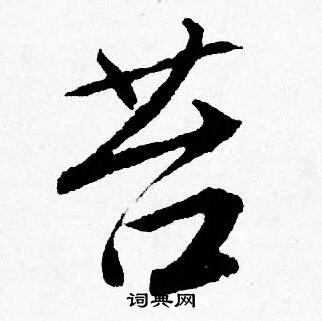 苔
词典网